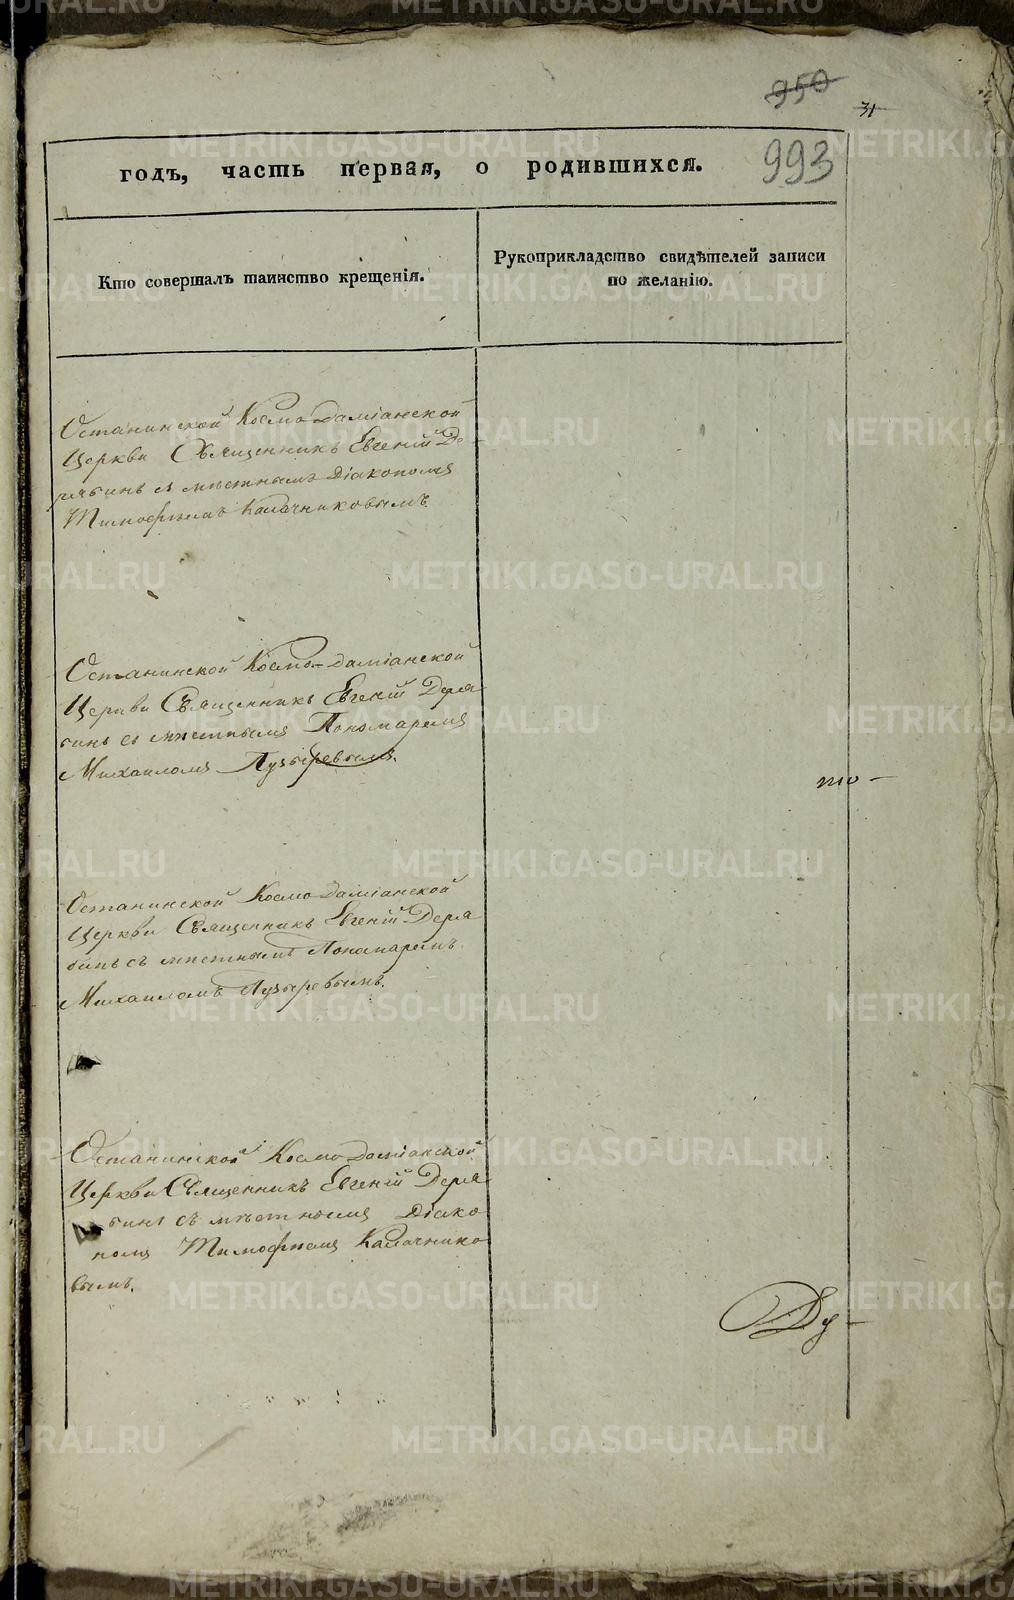 950
31
993
годъ, часть первая, о родившихся.
Кто совершалъ таинство крещенія.
Рукоприкладство свидѣтелей записи
по желанію.
Останинской Космо-Даміанской
Церкви Священникъ Евгеній Де-
рябинъ съ мѣстнымъ Діакономъ
Тимофеемъ Калачниковымъ.
Останинской Космо-Даміанской
Церкви Священникъ Евгеній Деря
бинъ съ мѣстнымъ Пономаремъ
Михаиломъ Пузыревымъ.
то —
Останинской Космо-Даміанской
Церкви Священникъ Евгеній Деря
бинъ съ мѣстнымъ Пономаремъ
Михаиломъ Пузыревымъ.
Останинской Космо-Даміанской
Церкви Священникъ Евгеній Деря
бинъ съ мѣстнымъ Діако
номъ Тимофеемъ Калачнико
вымъ.
METRIKI.GASO-URAL.RU